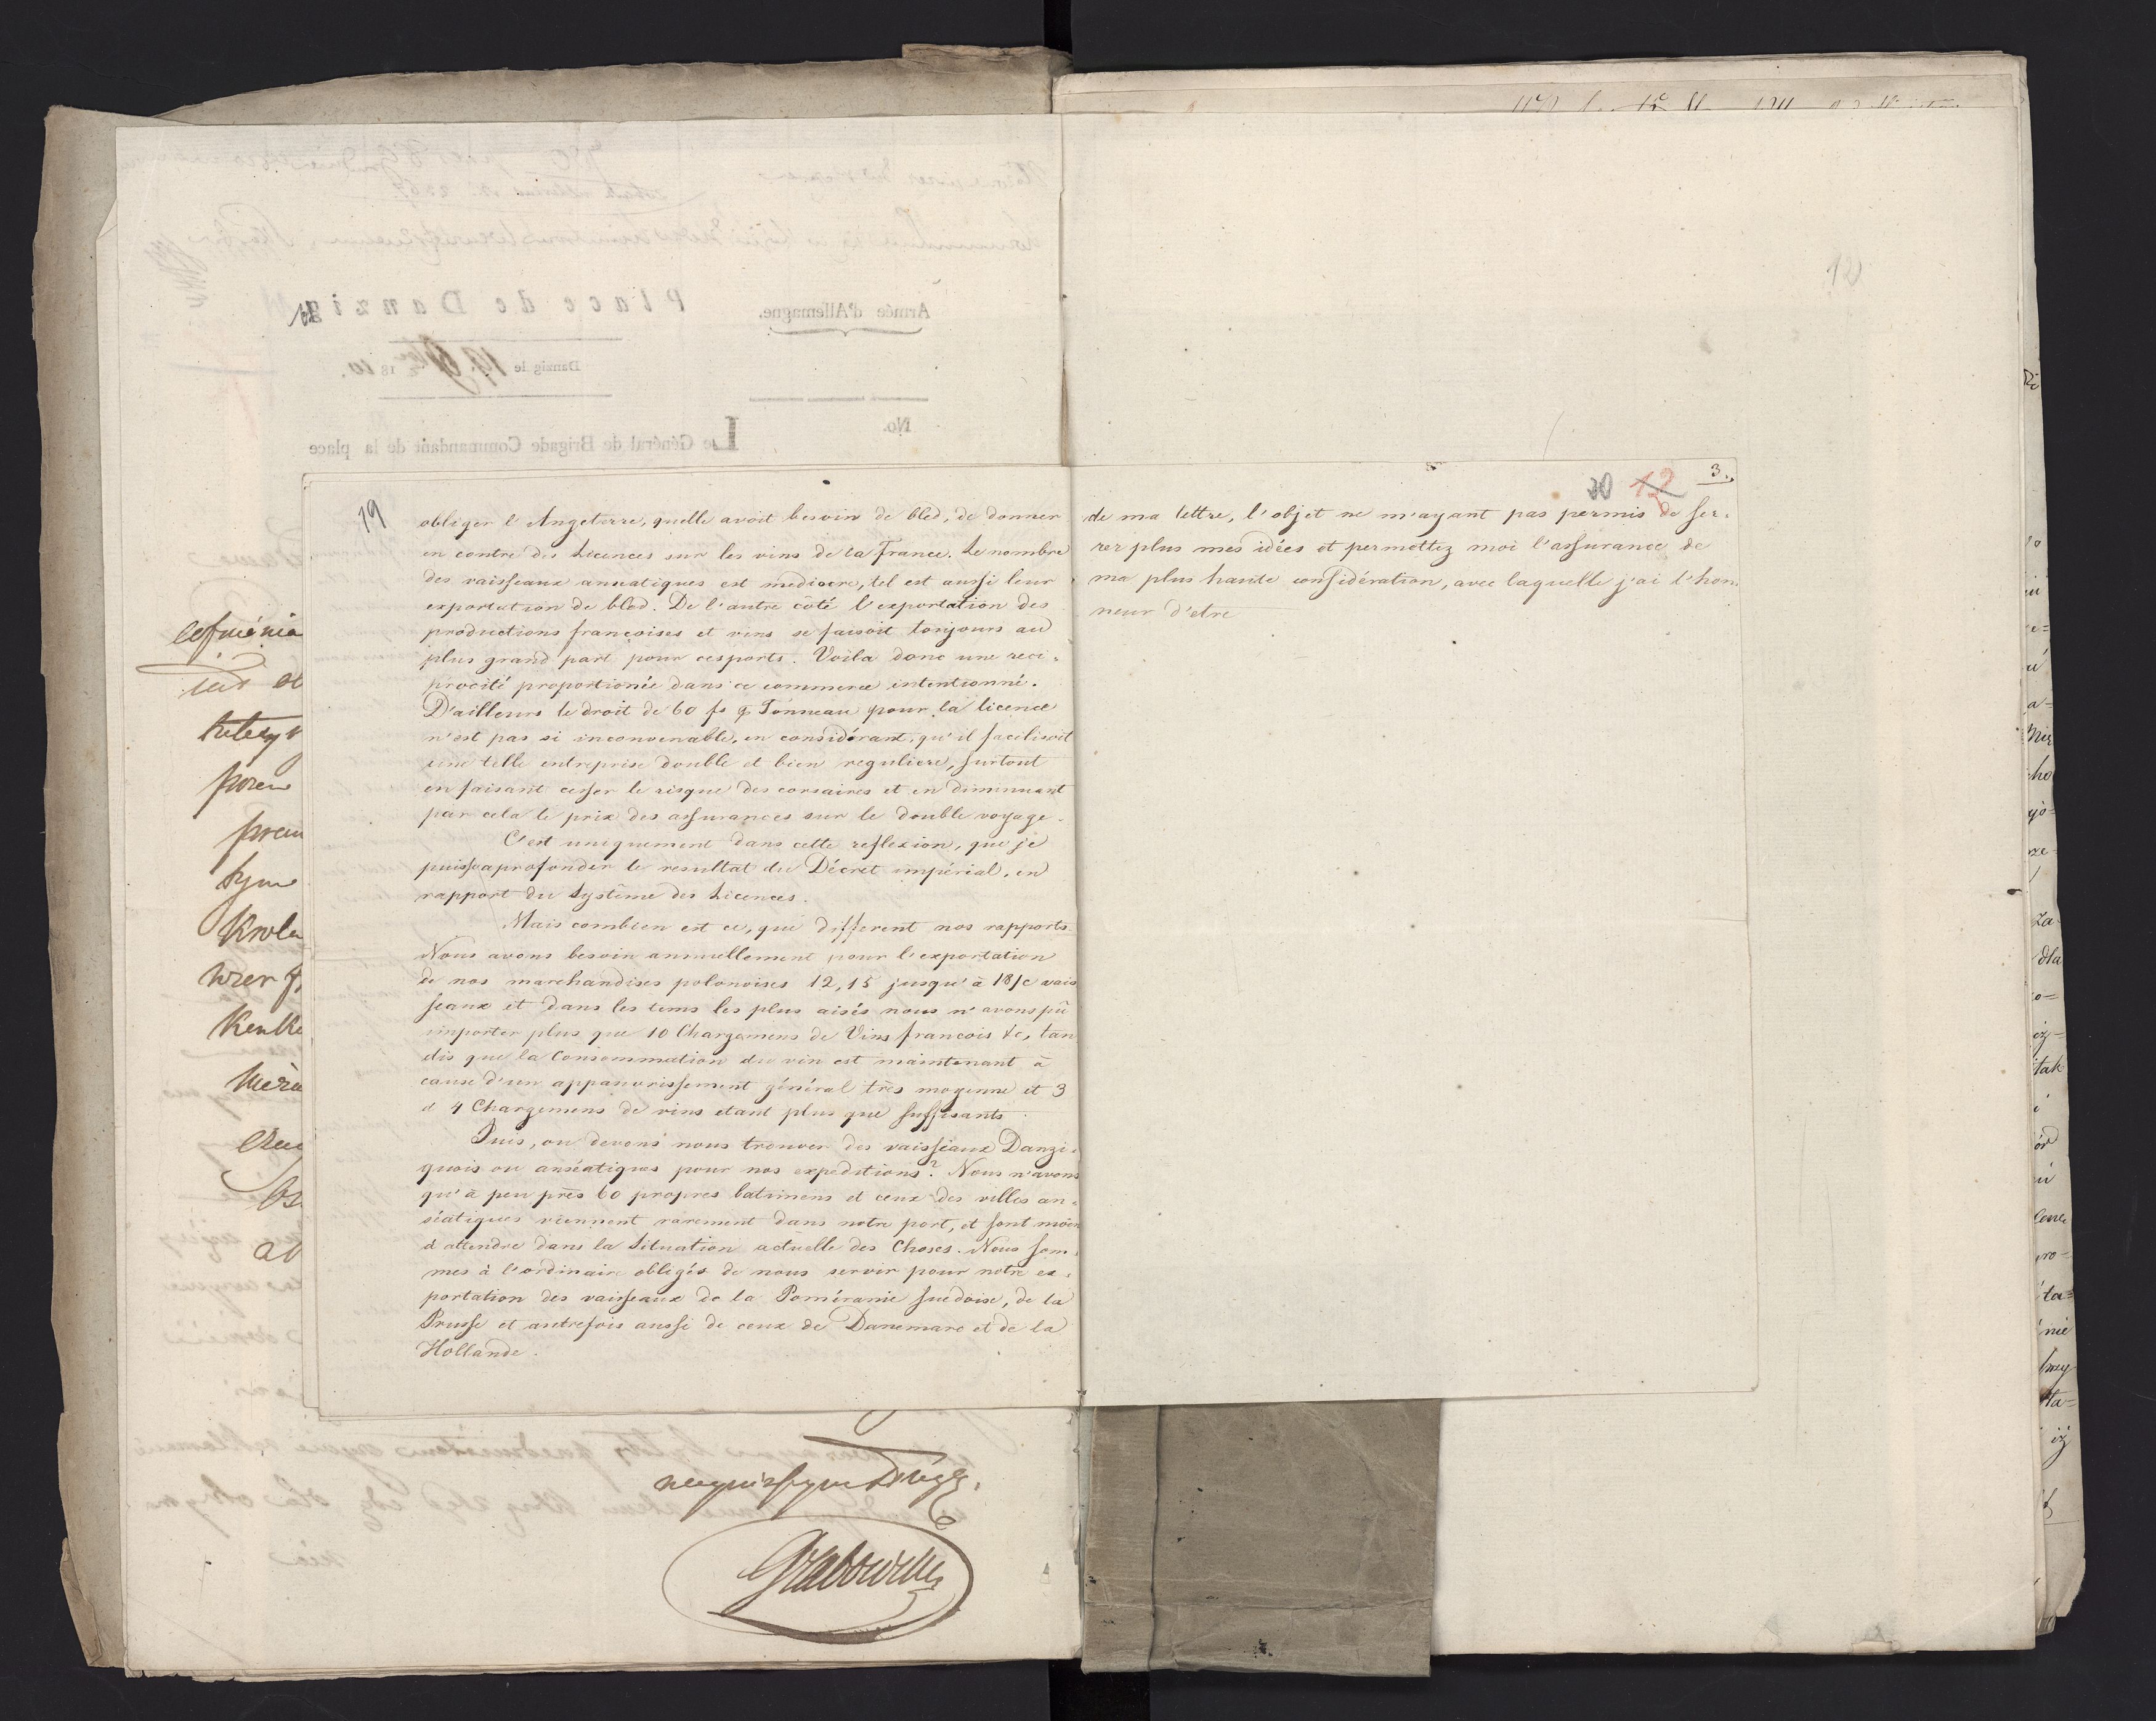 19
obliger l'Angeterre, quelle avoit besoin de bled, de donner
en contre des Licences sur les vins de la France. Le nombre
des vaisseaux anseatiques est mediocre, tel est aussi leur
exportation de bled. De l'autre côté l'exportation des
productions françoises et vins se faisoit toujours au
plus grand part pour ces ports. Voila donc une reci-
procité proportionée dans ce commerce intentionné.
D'ailleurs le droit de 60 fs p Tonneau pour la licence
n'est pas si inconvenable, en considérant, qu'il faciliroit
une telle entreprise double et bien reguliere, surtout
en faisant cesser le risque des corsaires et en diminuant
par cela le prix des assurances sur le double voyage.
C'est uniquement dans cette reflexion, que je
puisse aprofonder le resultat du Décret impérial, en
rapport du Système des Licences.
Mais combien est ce, que different nos rapports
Nous avons besoin annuellement pour l'exportation
de nos marchandises polonoises 12, 15 jusqu'à 18/c vais
seaux et dans les tems les plus aisés nous n'avons pû
importer plus que 10 Chargemens de Vins francois &c, tan
dis que la Consommation du vin est maintenant à
cause d'un appauvrissement général très moyenne et 3
à 4 Chargemens de vins etant plus que suffisants.
Puis, ou devons nous trouver des vaisseaux Danzi-
quois ou anséatiques pour nos expeditions? Nous n'avons
qu'à peu près 60 propres batimens et ceux des villes an-
séatiques viennent rarement dans notre port, et sont moin
à attendre dans la Situation actuelle des Choses. Nous som-
mes à l'ordinaire obligés de nous servir pour notre ex-
portation des vaisseaux de la Poméranie suédoise, de la
Prusse et autrefois aussi de ceux de Danemarc et de la
Hollande.
30 12 3.
de ma lettre, l'objet ne m'ayant pas permis de ser-
rer plus mes idées et permettez moi l'assurance de
ma plus haute considération, avec laquelle j'ai l'hon
neur d'etre
Place de Danzig
Armée d'Allemagne.
Danzig le 19. 1810.
No.
Le Général de Brigade Commandant de la place
Grabowski